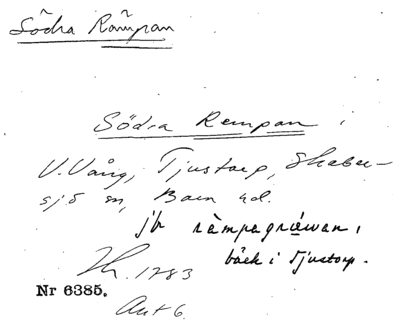 Södra Rämpan
Södra Rempan i
V. Vång, Tjustorp, Skabersjö
sn, Bara hd.
jfr rämpagräwan,
bäck i Tjustorp.
1783
Nr 6385.
Avt 6